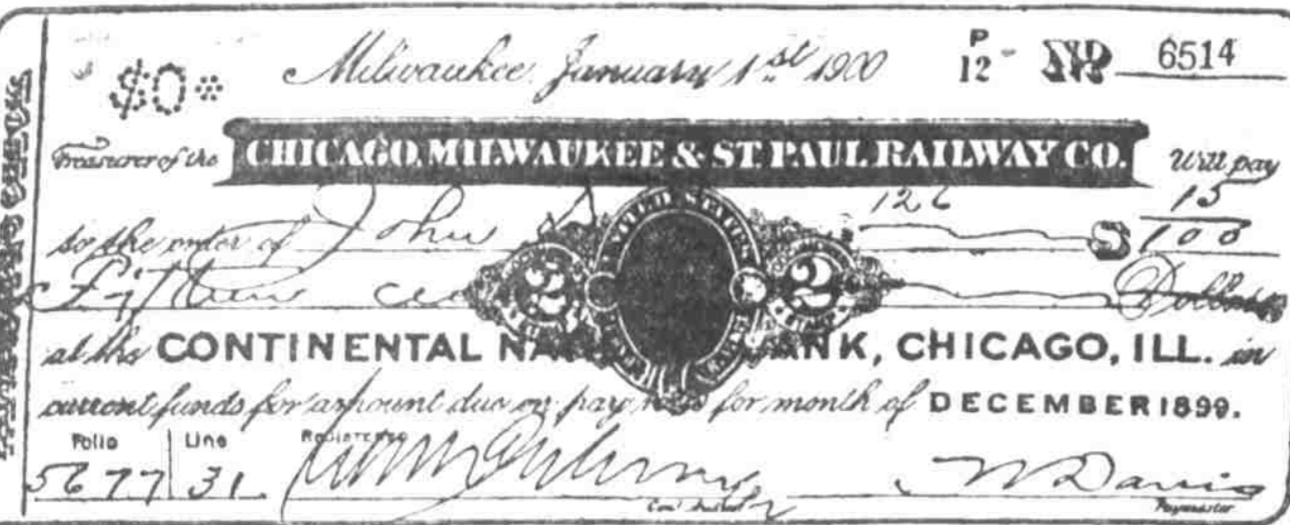 $0*
Milwaukee January 1st 1900
P 12 - No 6514
Treasurer of the CHICAGO, MILWAUKEE & ST. PAUL RAILWAY CO. Will pay
to the order of John 126 $ 15/100
Fifteen Dollars
UNITED STATES
2 2
at the CONTINENTAL BANK, CHICAGO, ILL. in
current funds for amount due on pay for month of DECEMBER 1899.
Folio Line REGISTERED
5677 31 Davis
Paymaster